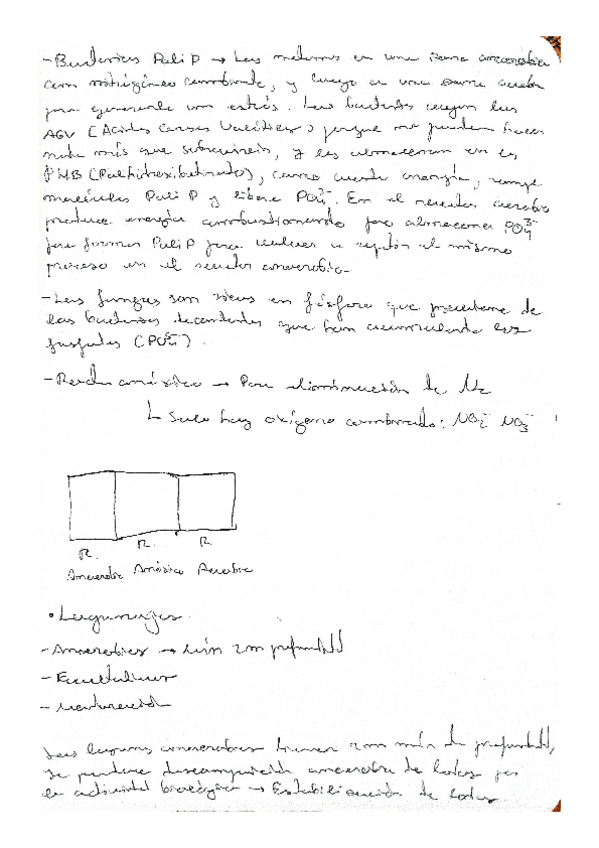 - Bacterias Poli P → Las metemos en una zona anaerobia
con nitrógeno combinado, y luego a una zona aerobia
para generarle un estrés. Las bacterias cogen los
AGV (Acidos Grasos Volátiles) porque no pueden hacer
nada más que subsistir, y los almacenan en
PHB (Polihidroxibutirato), como cuesta energía, rompe
moléculas Poli P y libera PO₄³⁻. En el reactor aerobio
produce energía combustionando para almacenar PO₄³⁻
para formar Poli P para volver a repetir el mismo
proceso en el reactor anaerobio.
- Los fangos son ricos en fósforo que procede de
las bacterias decantadas que han acumulado los
fosfatos (PO₄³⁻).
- Reactor anóxico → Para eliminación de N₂
↳ Solo hay oxígeno combinado: NO₂⁻ NO₃⁻
R. R. R.
Anaerobio Anóxico Aerobio
• Lagunajes
- Anaerobios → mín 2m profundidad
- Facultativas
- Maduración
Las lagunas anaerobias tienen 2m mín de profundidad,
se produce descomposición anaerobia de lodos por
la actividad biológica → Estabilización de lodos.